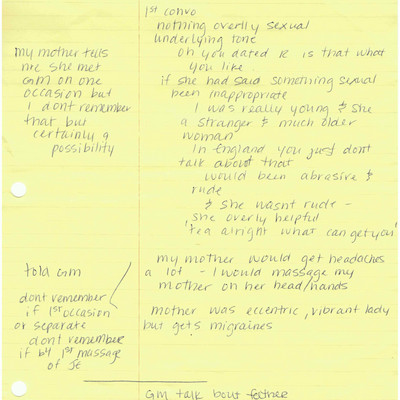 1st convo
nothing overtly sexual
underlying tone
oh you dated R is that what
you like
if she had said something sexual
been inappropriate
I was really young & she
a stranger & much older
woman
In England you just dont
talk about that
would been abrasive &
rude
& she wasnt rude -
she overly helpful
'tea alright what can get you'
my mother tells
me she met
GM on one
occasion but
I dont remember
that but
certainly a
possibility
my mother would get headaches
a lot - I would massage my
mother on her head/hands
mother was eccentric, vibrant lady
but gets migraines
told GM
dont remember
if 1st occasion
or separate
dont remember
if b4 1st massage
of JE
GM talk bout father